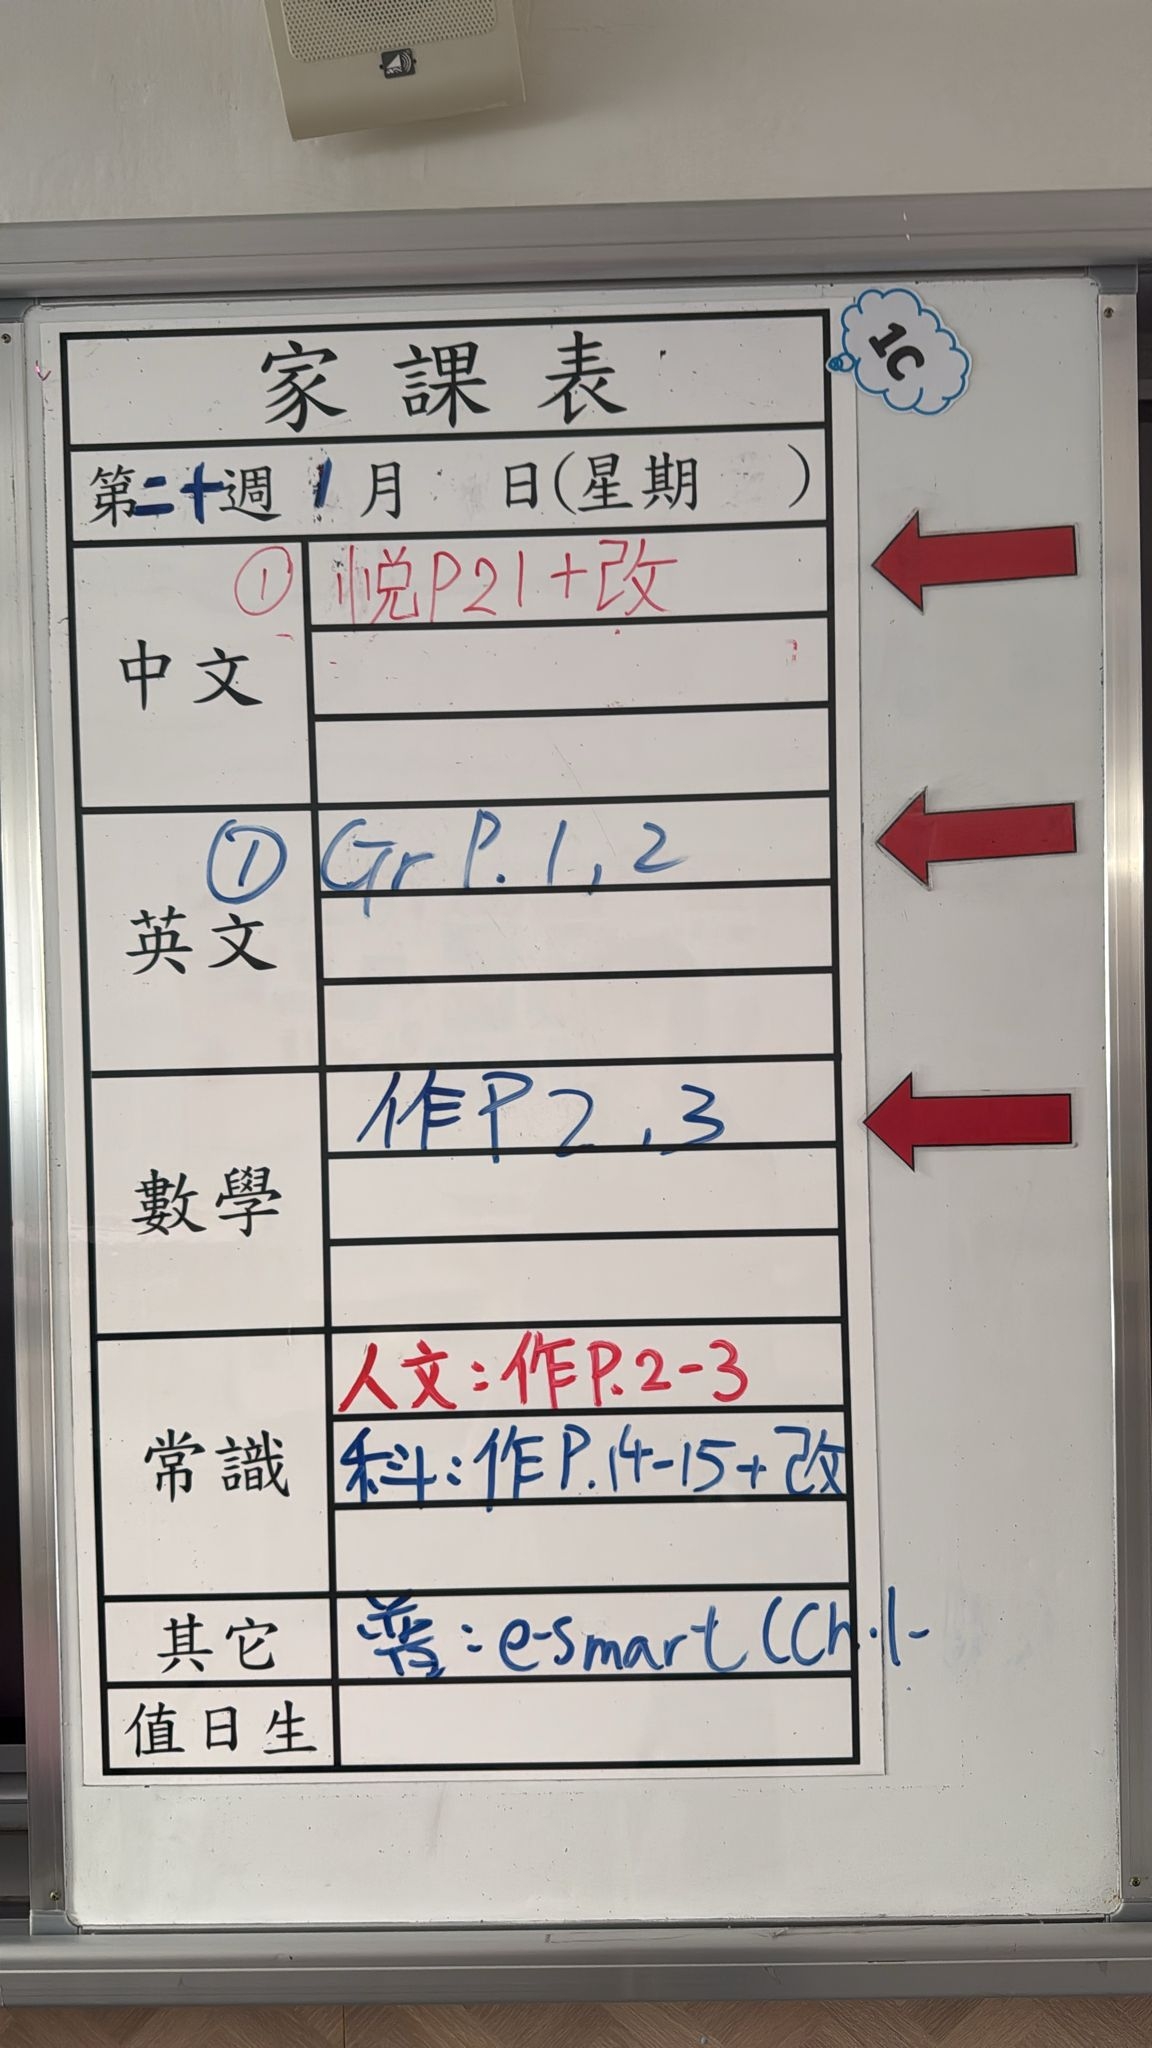 1C
家課表
第二十週 1月 日(星期 )
中文
① 悅P21+改
英文
① Gr P.1,2
數學
作P2,3
常識
人文:作P.2-3
科:作P.14-15+改
其它
普:e-smart (Ch.1-
值日生